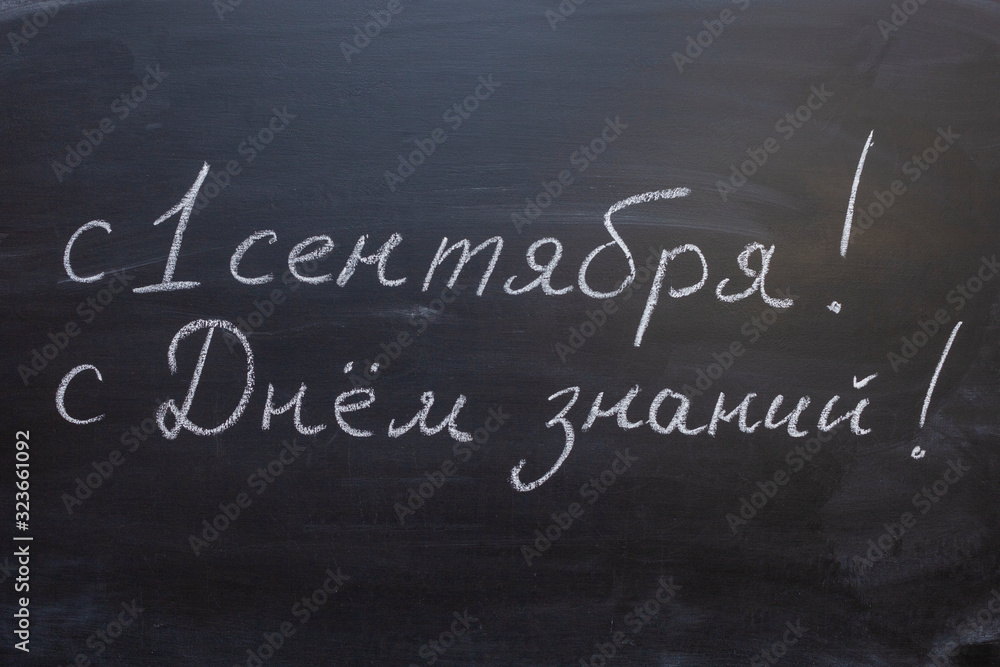 с 1 сентября!
с Днём знаний!
Adobe Stock | #323661092